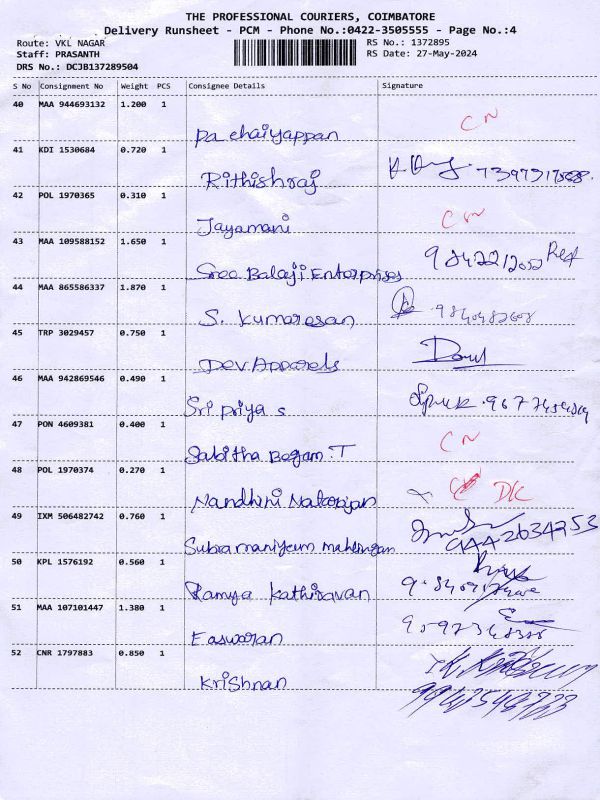 THE PROFESSIONAL COURIERS, COIMBATORE
Delivery Runsheet - PCM - Phone No.:0422-3505555 - Page No.:4
Route: VKL NAGAR
Staff: PRASANTH
DRS No.: DCJB137289504
RS No.: 1372895
RS Date: 27-May-2024
S No Consignment No Weight PCS Consignee Details Signature
40 MAA 944693132 1.200 1
Pachaiyappan CN
41 KDI 1530684 0.720 1
Rithishraj
42 POL 1970365 0.310 1
Jayamani CN
43 MAA 109588152 1.650 1
Sree Balaji Enterprises
44 MAA 865586337 1.870 1
S. Kumaresan
45 TRP 3029457 0.750 1
Dev Apparels
46 MAA 942869546 0.490 1
Sri priya s
47 PON 4609381 0.400 1
Sabitha Begam.T CN
48 POL 1970374 0.270 1
Nandhini Natarajan
49 IXM 506482742 0.760 1
Subramaniyeum mahlingan
50 KPL 1576192 0.560 1
Ramya Kathiravan
51 MAA 107101447 1.380 1
Easwaran
52 CNR 1797883 0.850 1
Krishnan